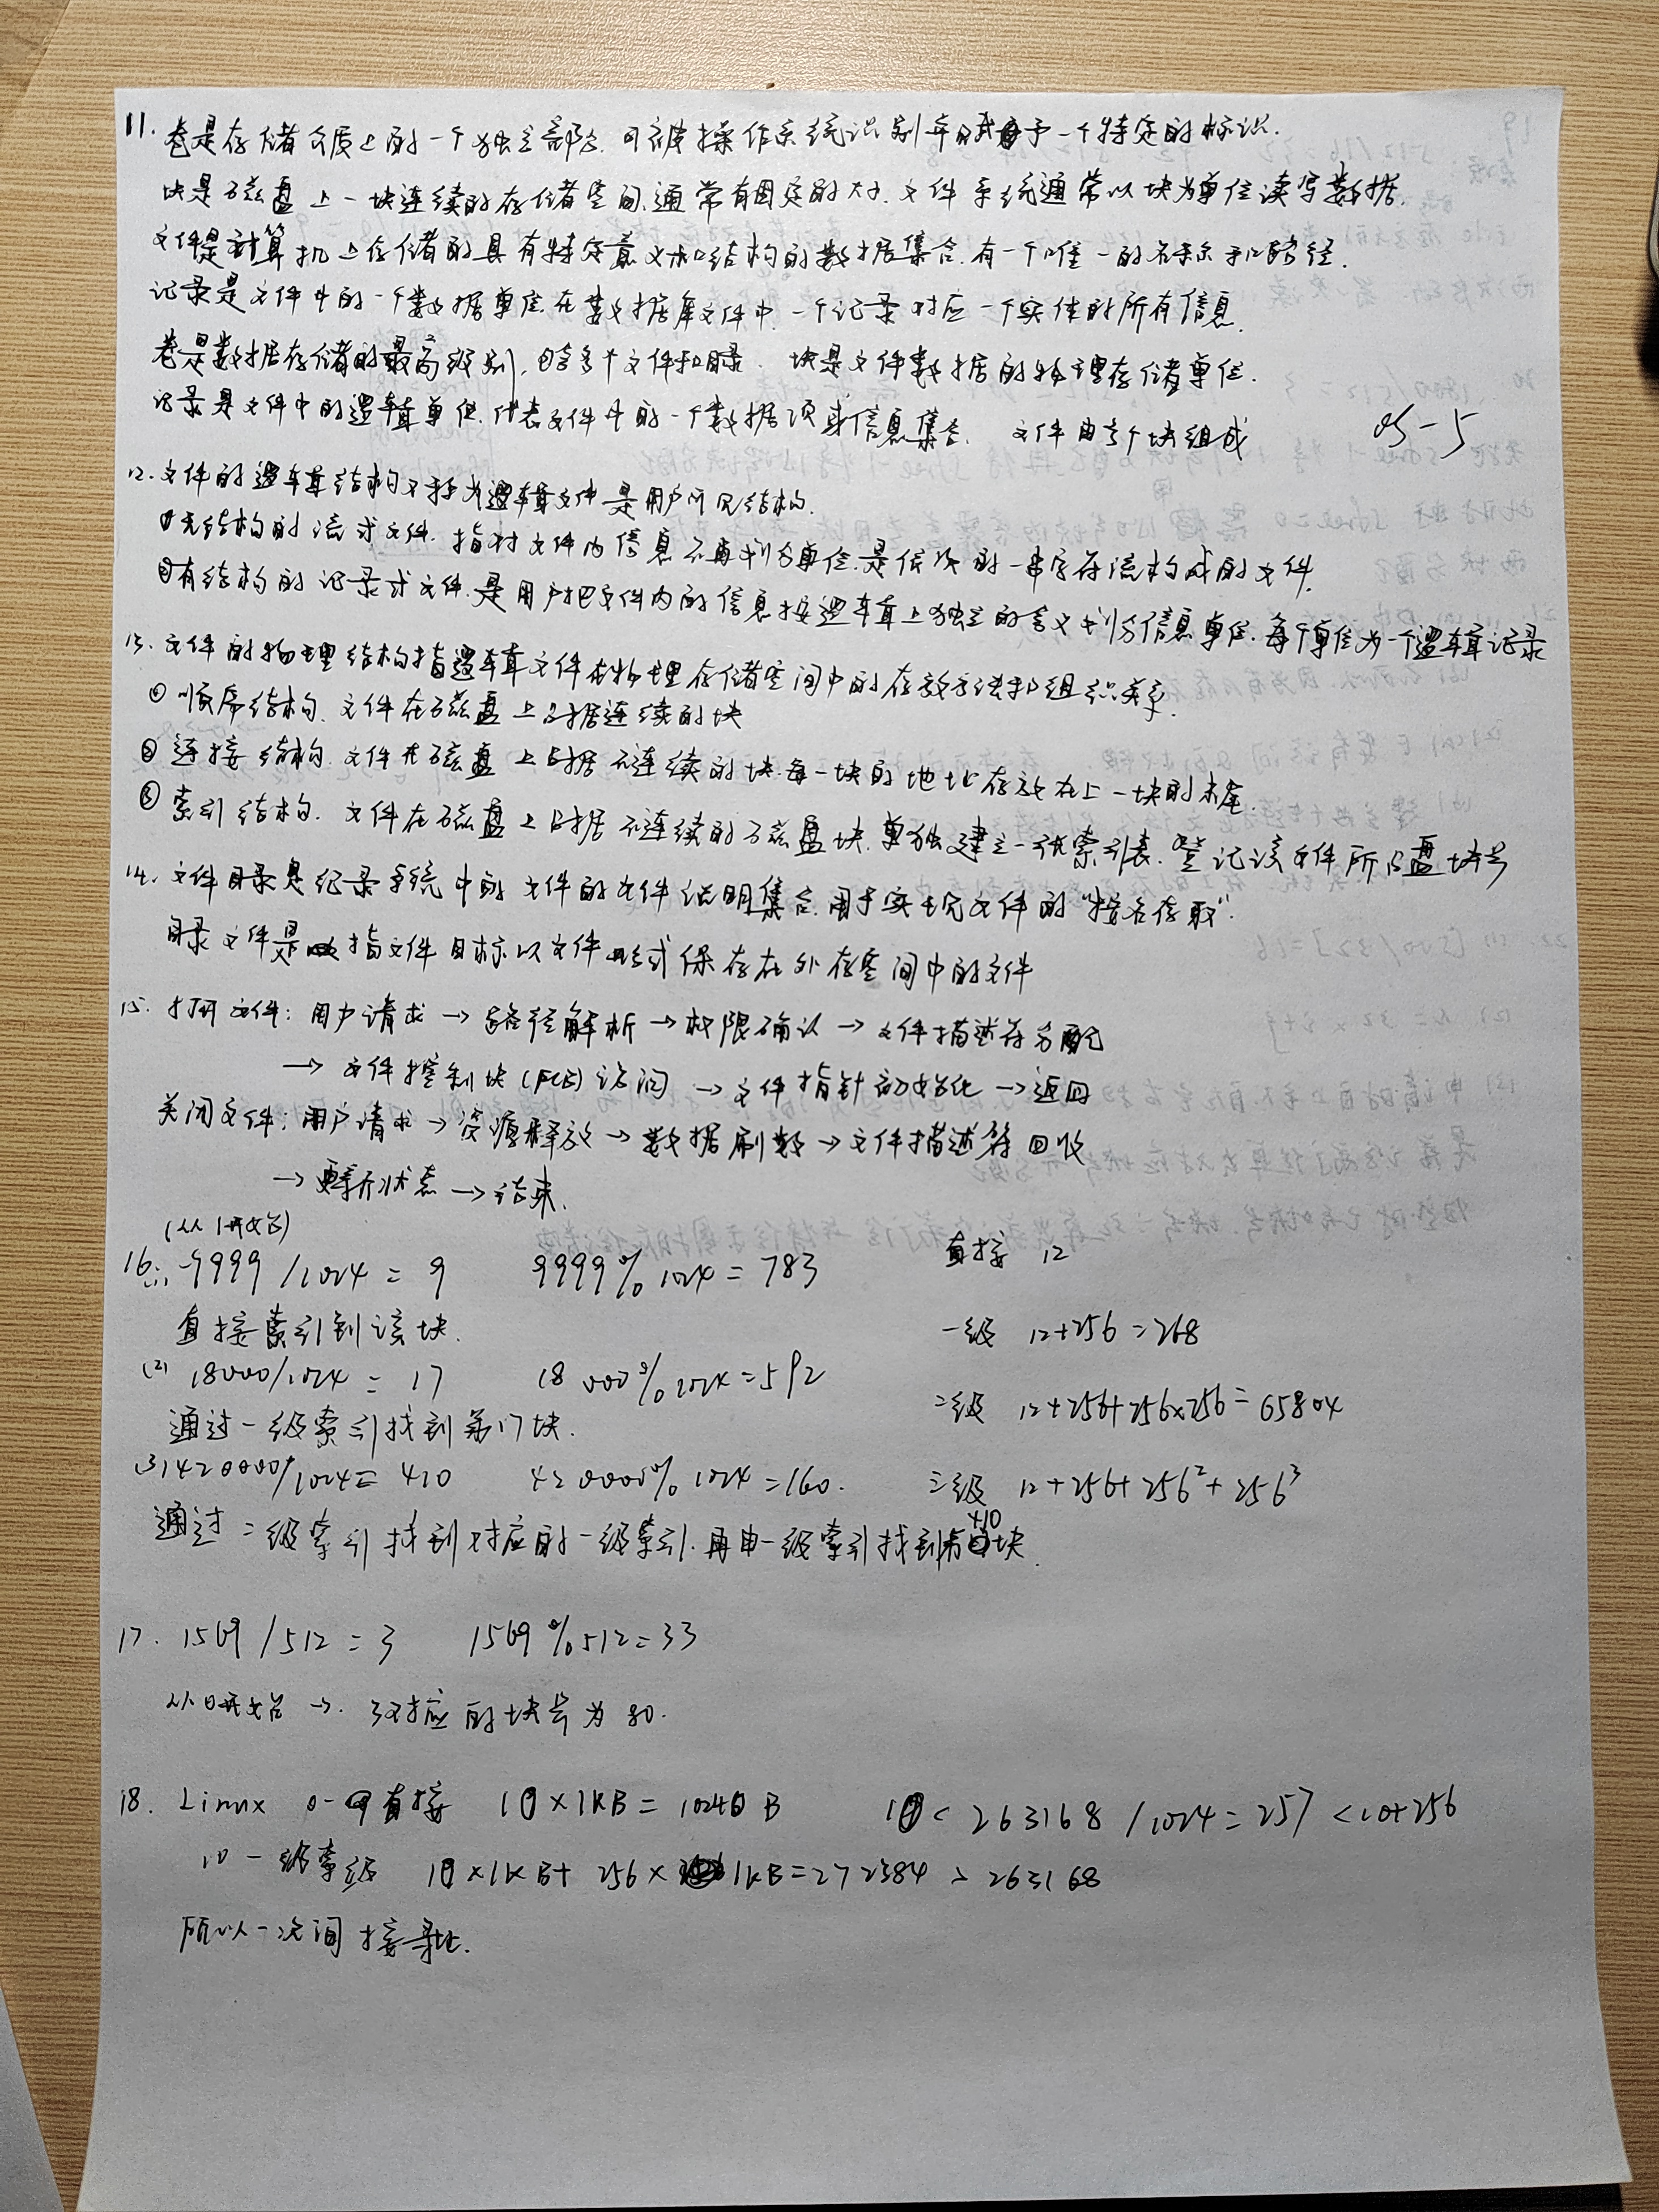 11. 卷是存储介质上的一个独立部分. 可被操作系统识别并赋予一个特定的标识.
块是磁盘上一块连续的存储空间、通常有固定的大小. 文件系统通常以块为单位读写数据.
文件是计算机上存储的具有特定意义和结构的数据集合. 有一个唯一的名称和路径.
记录是文件中的一个数据单位. 在数据库文件中. 一个记录对应一个实体的所有信息.
卷是数据存储的最高级别, 包含多个文件和目录. 块是文件数据的物理存储单位.
记录是文件中的逻辑单位. 代表文件中的一个数据项或信息集合. 文件由多个块组成
os-5
12. 文件的逻辑结构又称为逻辑文件 是用户所见结构.
①无结构的流式文件. 指对文件内信息不再划分单位. 是依次的一串字符流构成的文件.
②有结构的记录式文件. 是用户把文件内的信息按逻辑上独立的含义划分信息单位. 每个单位为一个逻辑记录
13. 文件的物理结构指逻辑文件在物理存储空间中的存放方法和组织关系.
① 顺序结构. 文件在磁盘上占据连续的块
② 连接结构. 文件在磁盘上占据不连续的块. 每一块的地址存放在上一块的末尾.
③ 索引结构. 文件在磁盘上占据不连续的磁盘块. 单独建立一张索引表. 登记该文件所占盘块号
14. 文件目录是纪录系统中的文件的文件说明集合. 用于实现文件的“按名存取”.
目录文件是指文件目标以文件形式保存在外存空间中的文件
15. 打开文件: 用户请求 → 路径解析 → 权限确认 → 文件描述符分配
→ 文件控制块 (FCB) 访问 → 文件指针初始化 → 返回
关闭文件: 用户请求 → 资源释放 → 数据刷数 → 文件描述符回收
→ 更新状态 → 结束.
(从1开始)
16. (1) 9999 / 1024 = 9 9999 % 1024 = 783 直接 12
直接索引到该块. 一级 12+256 = 268
(2) 18000/1024 = 17 18000 % 1024 = 592
通过一级索引找到第17块. 二级 12+256+256×256 = 65804
(3) 420000/1024 = 410 420000 % 1024 = 160. 三级 12+256+256²+256³
通过二级索引找到对应的一级索引. 再由一级索引找到第410块.
17. 1569 / 512 = 3 1569 % 512 = 33
从0开始 → 3对应的块号为80.
18. Linux 0-9直接 10 × 1KB = 10240 B 10 < 263168 / 1024 = 257 < 10+256
10 一级索级 10 × 1KB + 256 × 1KB = 272384 > 263168
所以一次间接寻址.